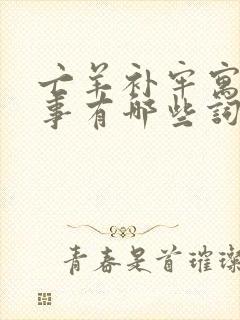 亡羊补牢寓
事有哪些词
青春是首璀璨